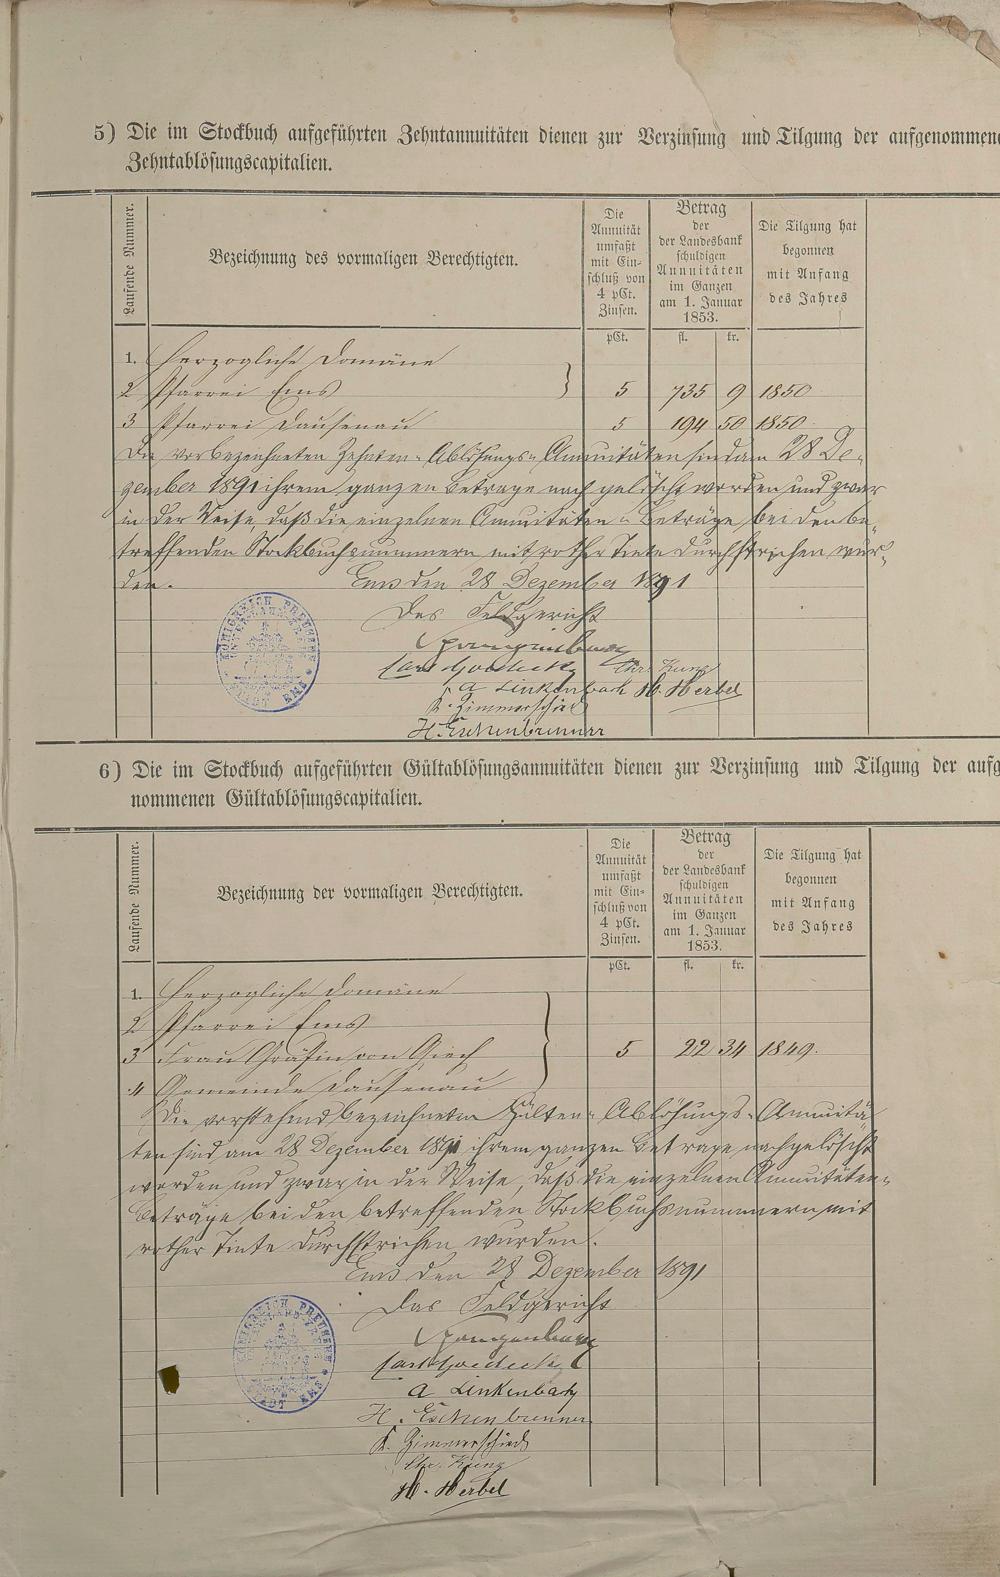 5) Die im Stockbuch aufgeführten Zehntannuitäten dienen zur Verzinsung und Tilgung der aufgenommene
Zehntablösungscapitalien.
Laufende Nummer.
Bezeichnung des vormaligen Berechtigten.
Die
Annuität
umfaßt
mit Ein-
schluß von
4 pCt.
Zinsen.
Betrag
der
der Landesbank
schuldigen
Annuitäten
im Ganzen
am 1. Januar
1853.
Die Tilgung hat
begonnen
mit Anfang
des Jahres
pCt. fl. kr.
1. Herzogliche Domäne
2 Pfarrei Ems } 5 735 9 1850
3 Pfarrei Dausenau 5 194 50 1850
Die vorbezeichneten Zehnten-Ablösungs-Annuitäten sind am 28 De-
zember 1891 ihrem ganzen Betrage nach gelöscht worden und zwar
in der Weise, daß die einzelnen Annuitäten-Beträge bei den be-
treffenden Stockbuchsnummern mit rother Tinte durchstrichen wur-
den. Ems den 28 Dezember 1891
Das Feldgericht
Carl Goedecke Chr. Kunz
A Linkenbach H. Herbel
K. Zimmerschied
H. Eschenbrenner
KÖNIGREICH PREUSSEN
STADT EMS
6) Die im Stockbuch aufgeführten Gültablösungsannuitäten dienen zur Verzinsung und Tilgung der aufg
nommenen Gültablösungscapitalien.
Laufende Nummer.
Bezeichnung der vormaligen Berechtigten.
Die
Annuität
umfaßt
mit Ein-
schluß von
4 pCt.
Zinsen.
Betrag
der
der Landesbank
schuldigen
Annuitäten
im Ganzen
am 1. Januar
1853.
Die Tilgung hat
begonnen
mit Anfang
des Jahres
pCt. fl. kr.
1. Herzogliche Domäne
2 Pfarrei Ems
3 Frau Gräfin von Giech } 5 22 34 1849.
4 Gemeinde Dausenau
Die vorstehend bezeichneten Gülten-Ablösungs-Annuitä
ten sind am 28 Dezember 1891 ihrem ganzen Betrage nach gelöscht
worden und zwar in der Weise, daß die einzelnen Annuitäten-
Beträge bei den betreffenden Stockbuchsnummern mit
rother Tinte durchstrichen wurden.
Ems den 28 Dezember 1891
Das Feldgericht
Carl Goedecke
A Linkenbach
H. Eschenbrenner
K. Zimmerschied
Chr. Kunz
H. Herbel
KÖNIGREICH PREUSSEN
STADT EMS